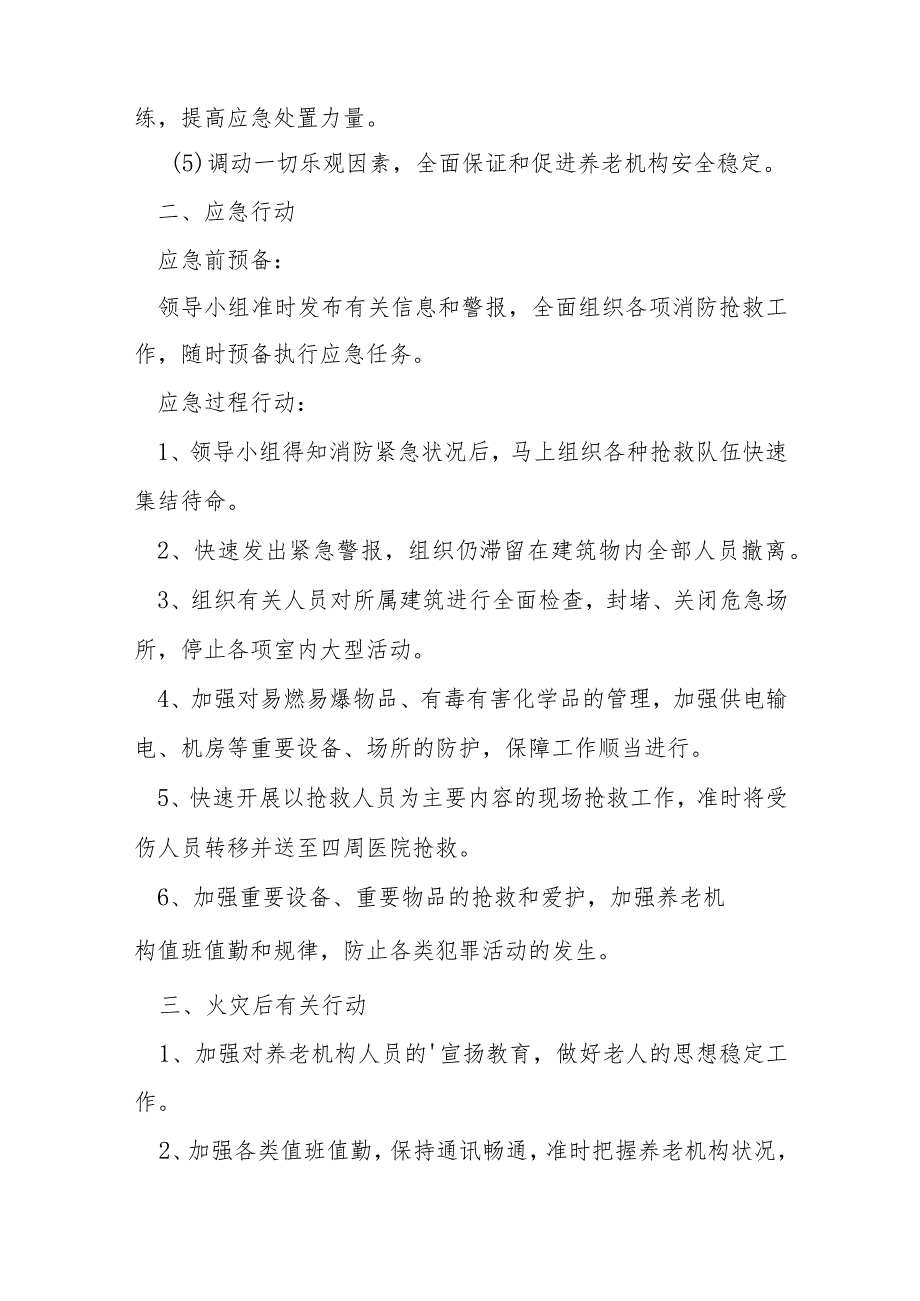 练，提高应急处置力量。
(5)调动一切乐观因素，全面保证和促进养老机构安全稳定。
二、应急行动
应急前预备：
领导小组准时发布有关信息和警报，全面组织各项消防抢救工
作，随时预备执行应急任务。
应急过程行动：
1、领导小组得知消防紧急状况后，马上组织各种抢救队伍快速
集结待命。
2、快速发出紧急警报，组织仍滞留在建筑物内全部人员撤离。
3、组织有关人员对所属建筑进行全面检查，封堵、关闭危急场
所，停止各项室内大型活动。
4、加强对易燃易爆物品、有毒有害化学品的管理，加强供电输
电、机房等重要设备、场所的防护，保障工作顺当进行。
5、快速开展以抢救人员为主要内容的现场抢救工作，准时将受
伤人员转移并送至四周医院抢救。
6、加强重要设备、重要物品的抢救和爱护，加强养老机
构值班值勤和规律，防止各类犯罪活动的发生。
三、火灾后有关行动
1、加强对养老机构人员的'宣扬教育，做好老人的思想稳定工
作。
2、加强各类值班值勤，保持通讯畅通，准时把握养老机构状况，